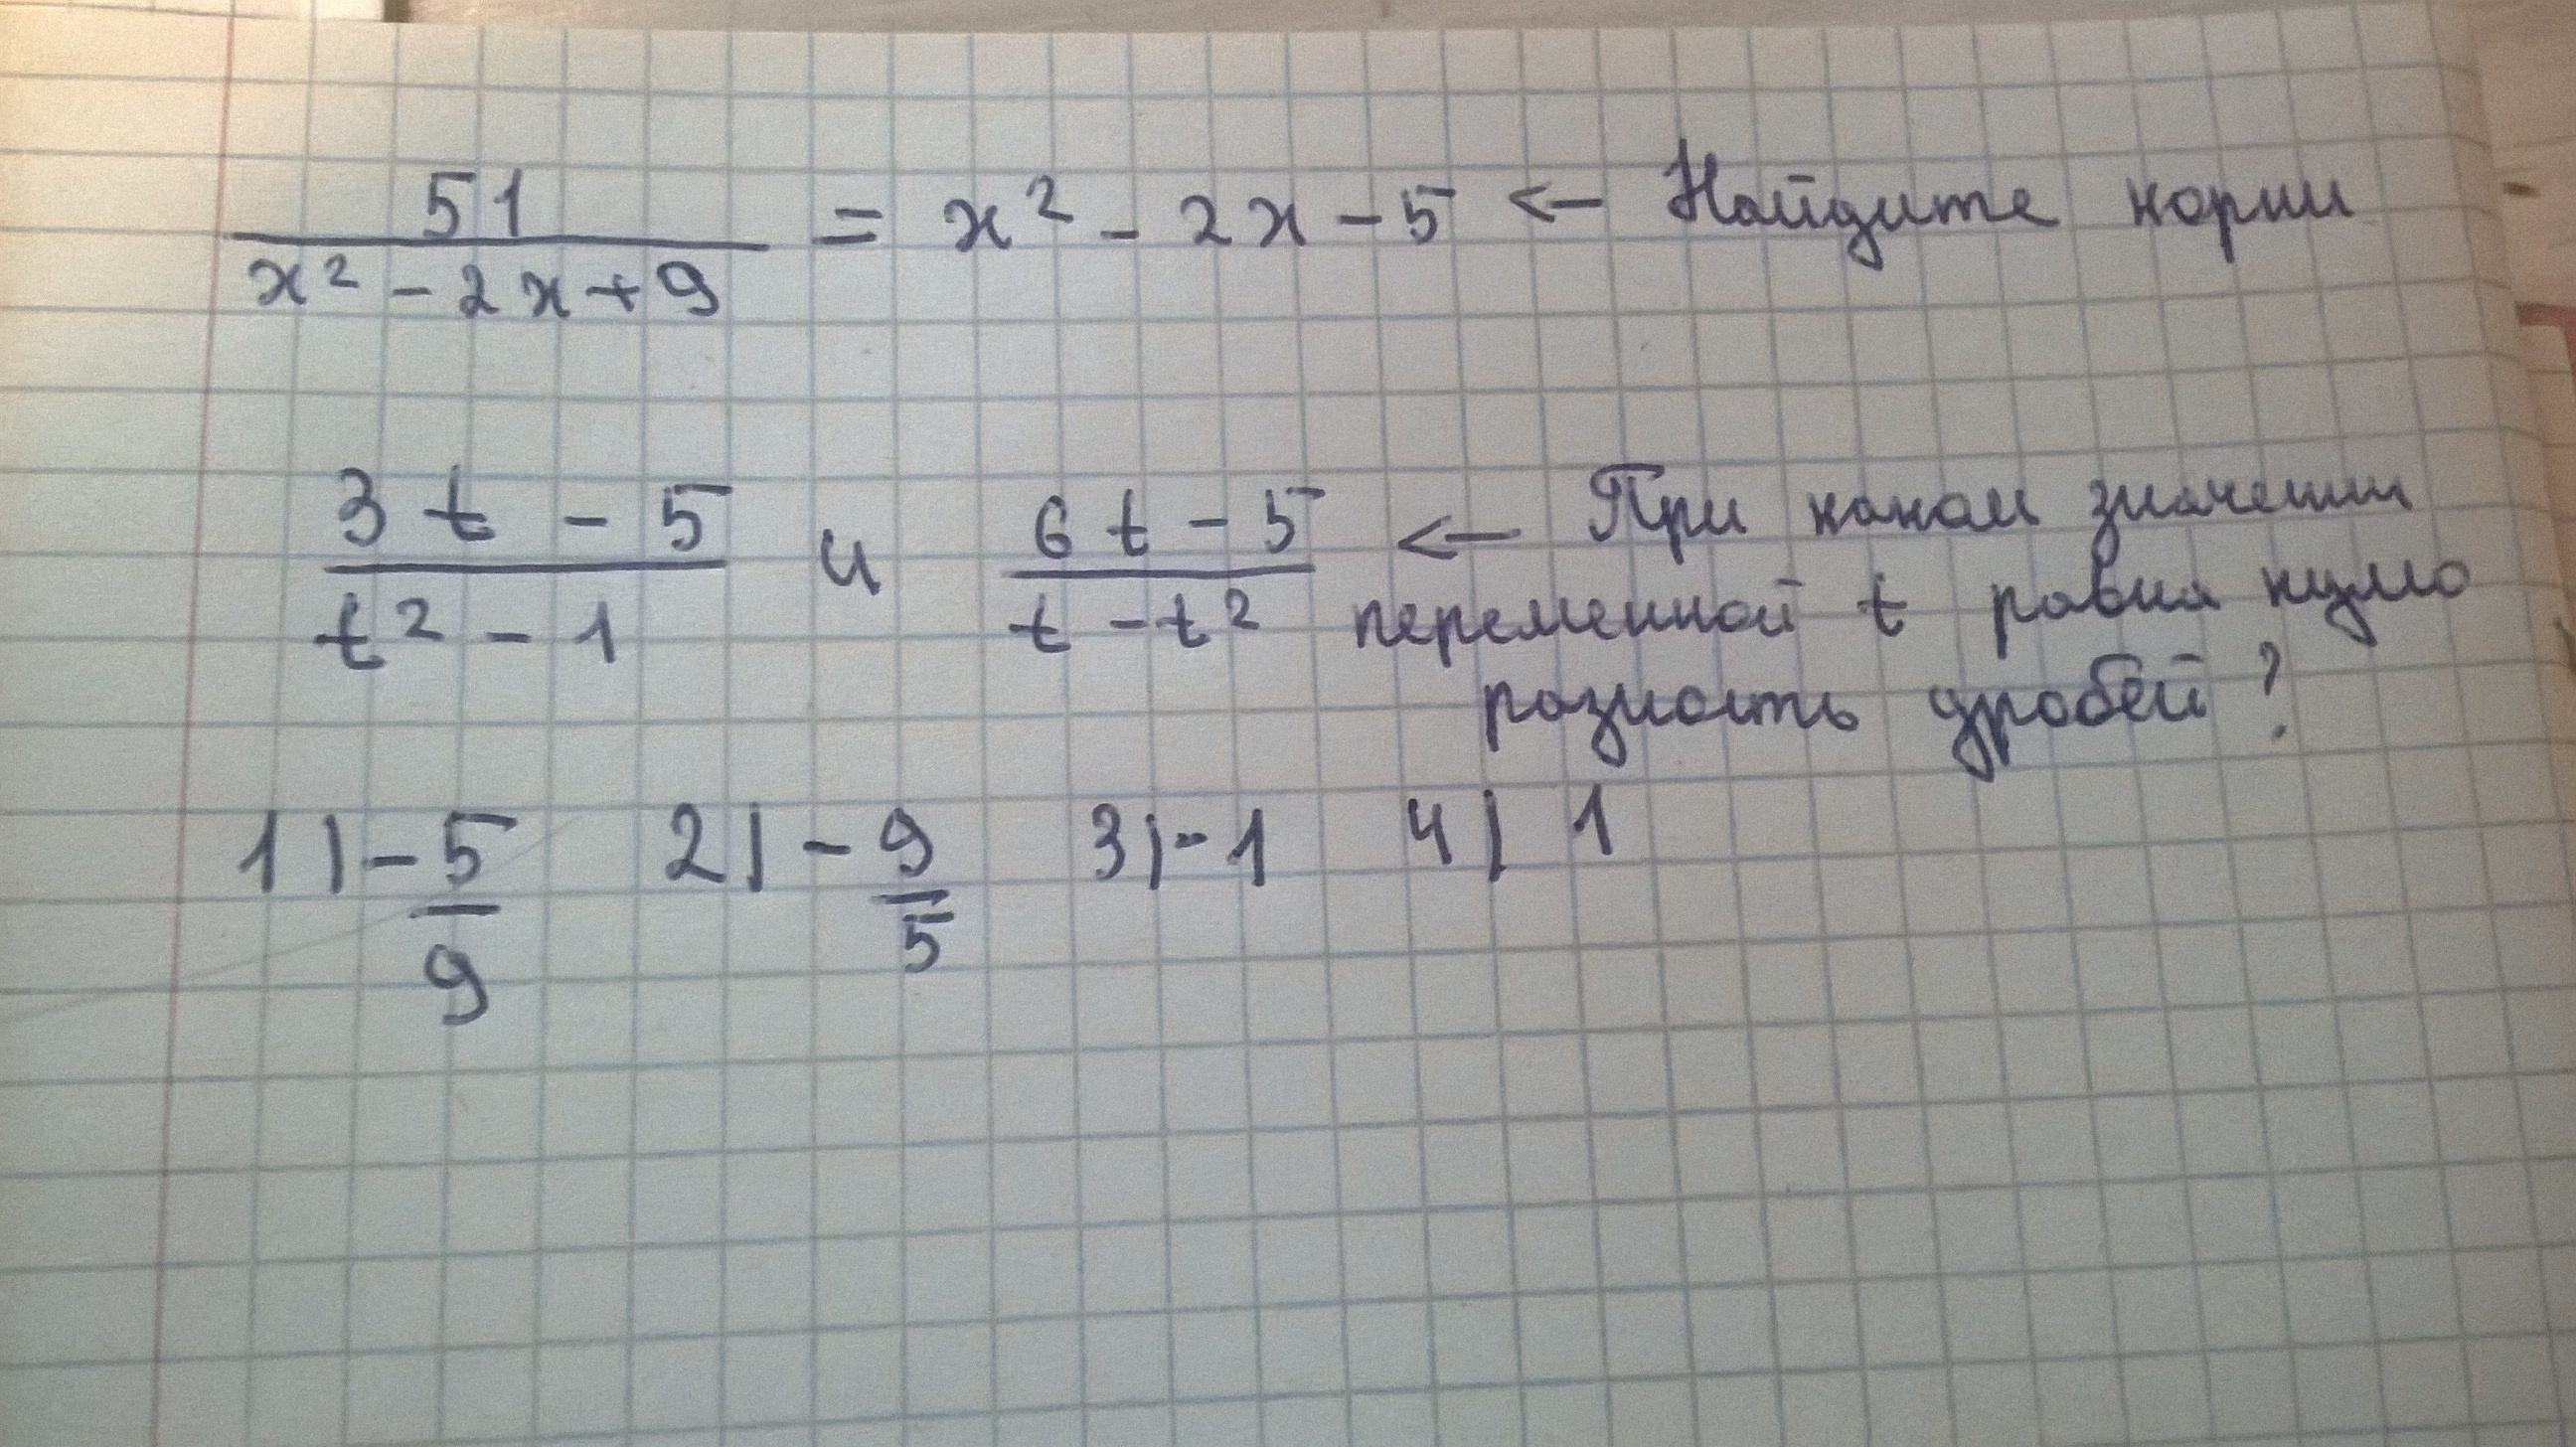 51/(x² - 2x + 9) = x² - 2x - 5 ← Найдите корни
(3t - 5)/(t² - 1) и (6t - 5)/(t - t²) ← При каком значении
переменной t равна нулю
разность дробей?
1) -5/9 2) -9/5 3) -1 4) 1